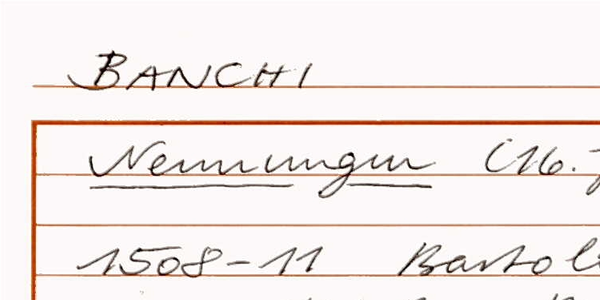 BANCHI
Nennungen (16.
1508-11 Barto